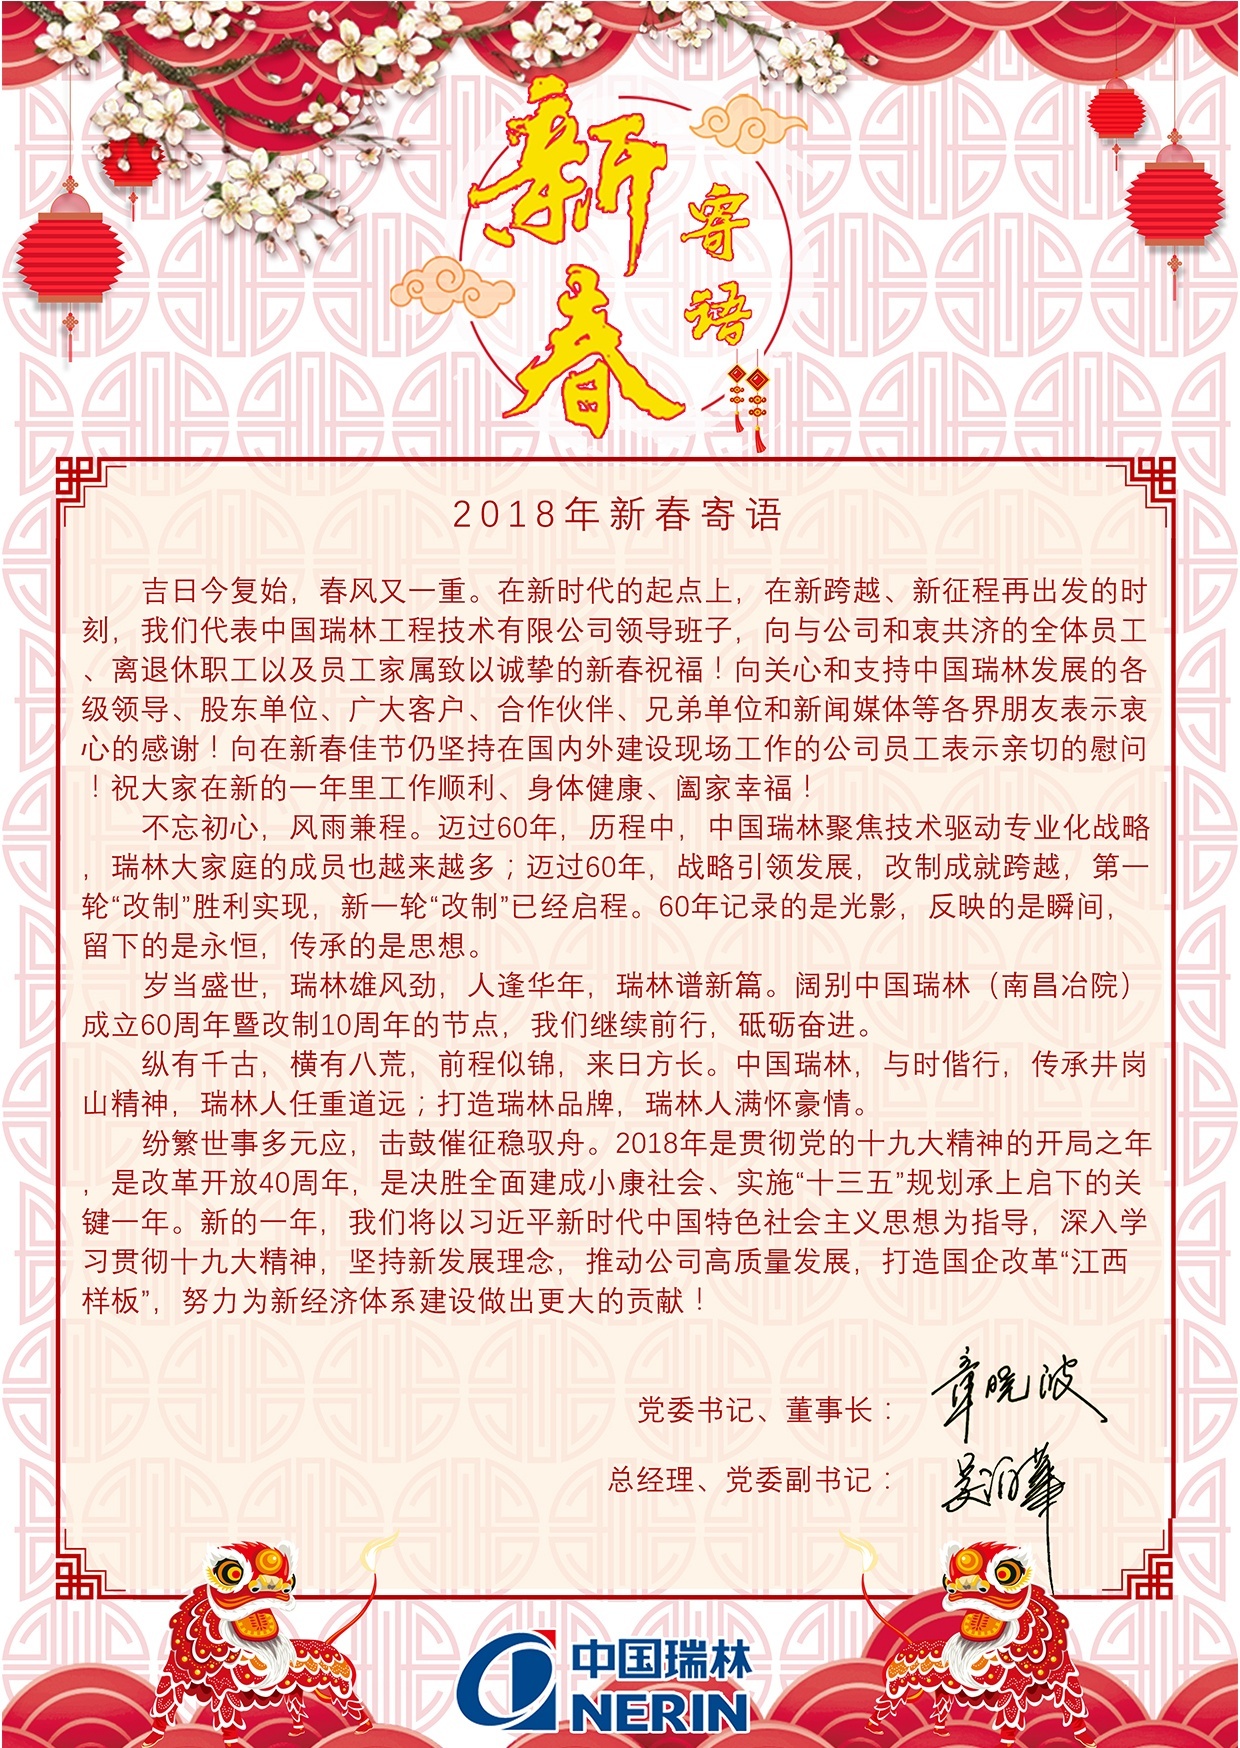 新春
寄语
2018年新春寄语
吉日今复始，春风又一重。在新时代的起点上，在新跨越、新征程再出发的时
刻，我们代表中国瑞林工程技术有限公司领导班子，向与公司和衷共济的全体员工
、离退休职工以及员工家属致以诚挚的新春祝福！向关心和支持中国瑞林发展的各
级领导、股东单位、广大客户、合作伙伴、兄弟单位和新闻媒体等各界朋友表示衷
心的感谢！向在新春佳节仍坚持在国内外建设现场工作的公司员工表示亲切的慰问
！祝大家在新的一年里工作顺利、身体健康、阖家幸福！
不忘初心，风雨兼程。迈过60年，历程中，中国瑞林聚焦技术驱动专业化战略
，瑞林大家庭的成员也越来越多；迈过60年，战略引领发展，改制成就跨越，第一
轮“改制”胜利实现，新一轮“改制”已经启程。60年记录的是光影，反映的是瞬间，
留下的是永恒，传承的是思想。
岁当盛世，瑞林雄风劲，人逢华年，瑞林谱新篇。阔别中国瑞林（南昌冶院）
成立60周年暨改制10周年的节点，我们继续前行，砥砺奋进。
纵有千古，横有八荒，前程似锦，来日方长。中国瑞林，与时偕行，传承井岗
山精神，瑞林人任重道远；打造瑞林品牌，瑞林人满怀豪情。
纷繁世事多元应，击鼓催征稳驭舟。2018年是贯彻党的十九大精神的开局之年
，是改革开放40周年，是决胜全面建成小康社会、实施“十三五”规划承上启下的关
键一年。新的一年，我们将以习近平新时代中国特色社会主义思想为指导，深入学
习贯彻十九大精神，坚持新发展理念，推动公司高质量发展，打造国企改革“江西
样板”，努力为新经济体系建设做出更大的贡献！
党委书记、董事长：章晓波
总经理、党委副书记：吴润華
中国瑞林
NERIN